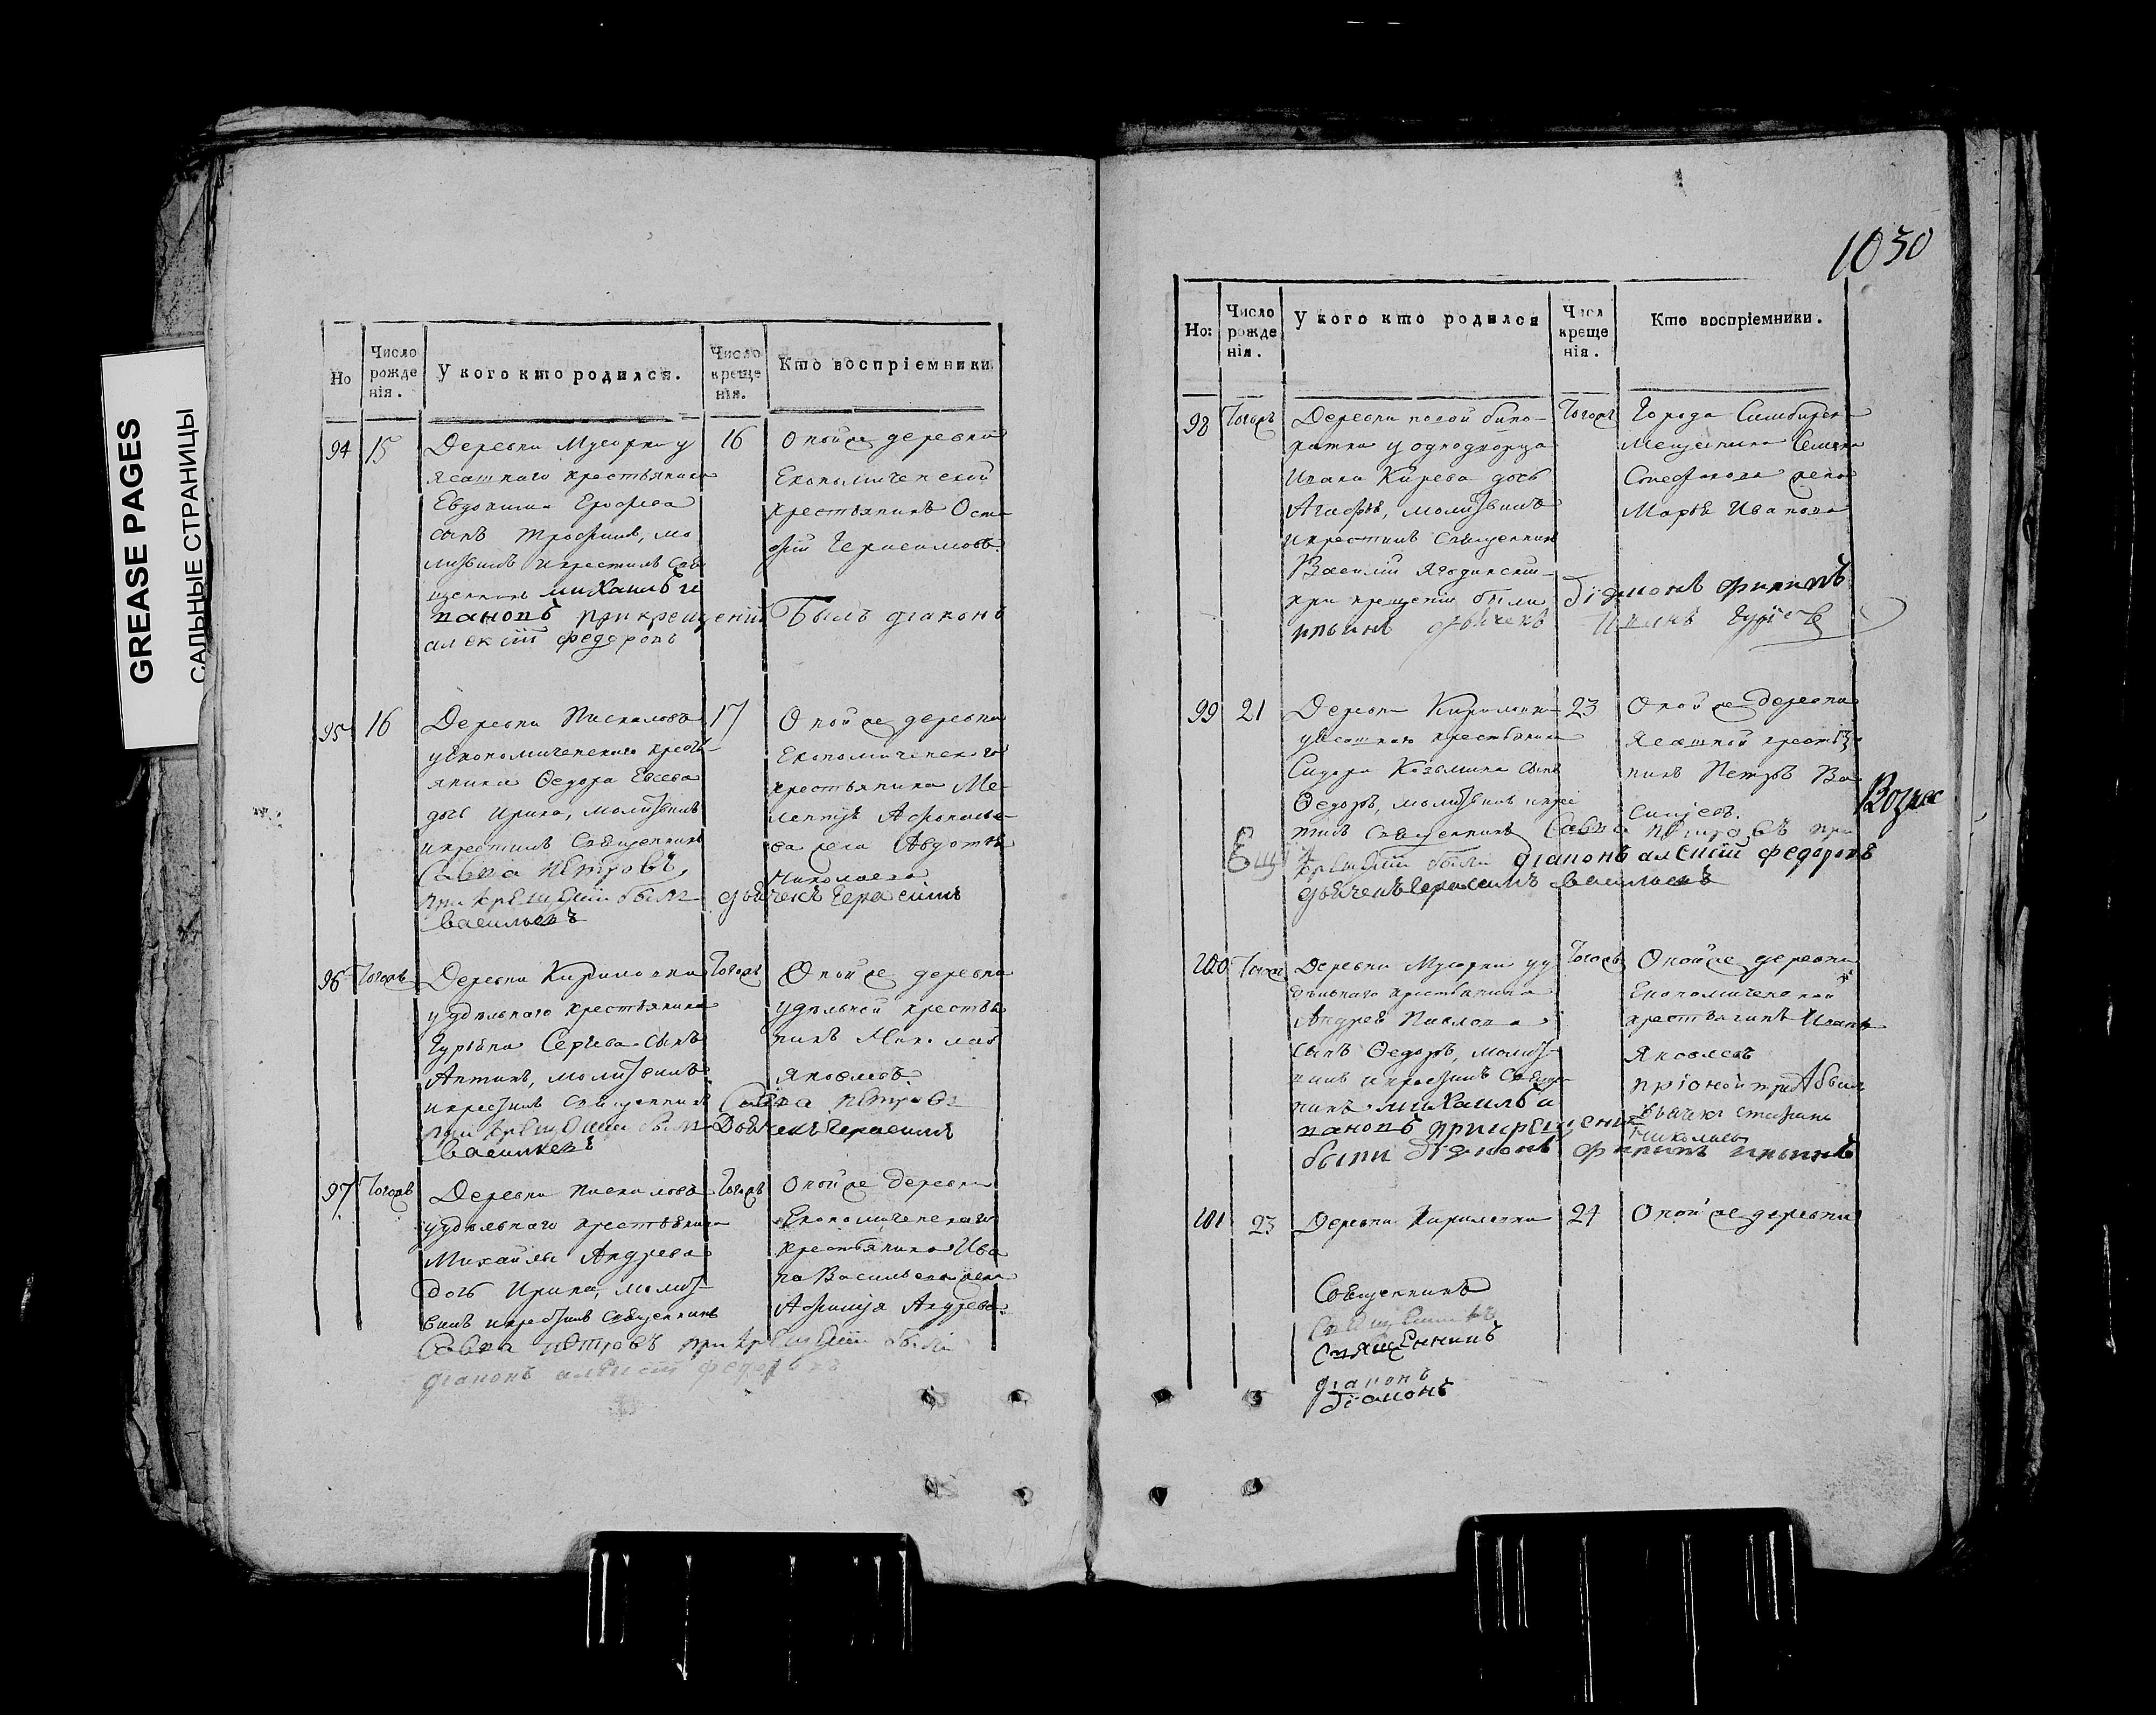 GREASE PAGES
САЛЬНЫЕ СТРАНИЦЫ
Но
Число рожденія.
У кого кто родился.
Число крещенія.
Кто воспріемники
94
15
Деревни Мусорки у
ясашнаго крестьянина
Евдокима Ерофеева
сынъ Трофимъ, мо
литвилъ и крестилъ Свя
щенникъ Михаилъ И
пановъ при крещеніи былъ діаконъ
алексій федоровъ
16
Оной же деревни
Економической
крестьянинъ Оста
фій Герасимовъ.
95
16
Деревни Пискаловъ
у Економическаго кресть-
янина Ѳедора Евсева
дочь Ирина, молитвилъ
и крестилъ Священникъ
Савва Петровъ,
при крещеніи были дьячекъ Герасимъ
васильевъ
17
Оной же деревни
Економическаго
крестьянина Ме-
жена Авдотья
Николаева
96
Тогожъ
Деревни Кирилловки
удѣльнаго крестьянина
сынъ
Антипъ, молитвилъ
и крестилъ Священникъ Савва Петровъ
при крещеніи были дьячекъ Герасимъ
васильевъ
Тогожъ
Оной же деревни
удѣльной крестья
нинъ Николай
Яковлевъ.
97
Тогожъ
Деревни Пискаловъ
удѣльнаго крестьянина
Михайлы Андрева
дочь Ирина, молит-
вилъ и крестилъ Священникъ
Савва петровъ при крещеніи были
діаконъ алексій федоровъ
Тогожъ
Оной же деревни
Економическаго
крестьянина Ива
на Васильева жена
Афимья Андрева.
1030
Но:
Число рожденія.
У кого кто родился
Числ крещенія.
Кто воспріемники.
98
Тогожъ
Деревни новой
у однодворца
Ивана Кирева дочь
Агафья, молитвилъ
и крестилъ Священникъ
Василій Ягодинскій
при крещеніи были діаконъ филипъ
ильинъ дьячекъ
Тогожъ
Города Симбирска
Мещанина Семена
Стефанова жена
Марья Иванова
99
21
Деревни Кирилловки
у Ясашнаго крестьянина
Сидора Козьмина сынъ
Ѳедоръ, молитвилъ и крес
тилъ Священникъ Савва петровъ при
крещеніи были діаконъ алексій федоровъ
дьячекъ Герасимъ васильевъ
23
Оной же деревни
Ясашной крестья
нинъ Петръ Ва
сильевъ.
100
Тогожъ
Деревни Мусорки уу
дѣльнаго крестьянина
Андрея Павлова
сынъ Ѳедоръ, молит-
вилъ и крестилъ Священ
никъ Михаилъ И
пановъ при крещеніи
были діаконъ филипъ ильинъ
Тогожъ
Оной же деревни
Економической
крестьянинъ Иванъ
Яковлевъ
дьячекъ стефанъ
Николаевъ
101
23
Деревни Кирилловки
24
Оной же деревни
Священникъ
Священникъ
Священникъ
діаконъ
діаконъ